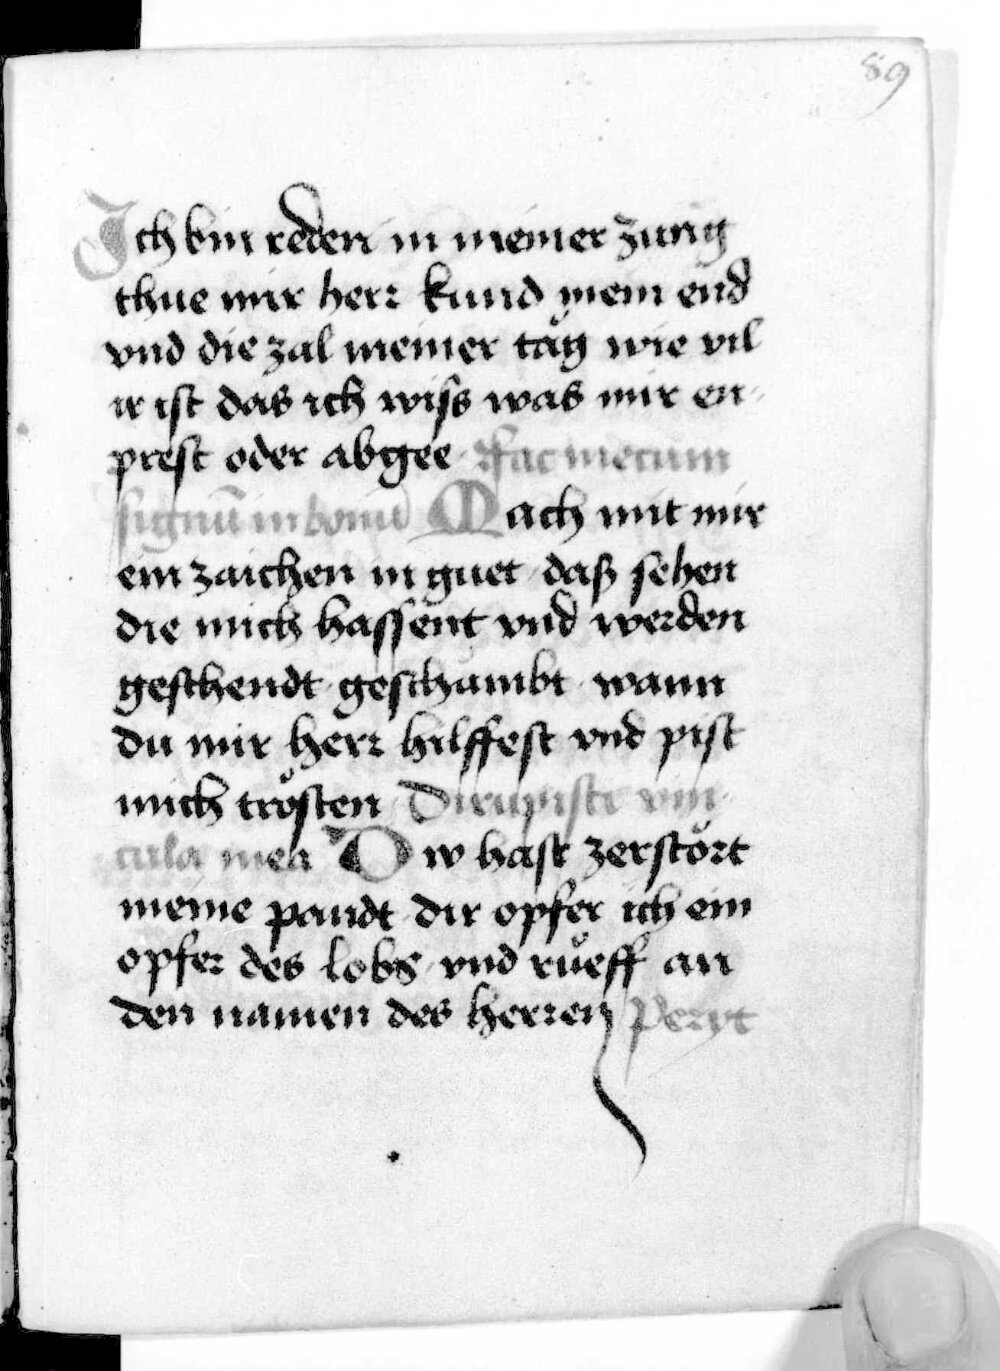 89
Ich bin reden in meiner zung
thue mir herr kund mein end
vnd die zal meiner täg wie vil
ir ist das ich wiss was mir en-
prest oder abgee Fac mecum
signū in bonū Mach mit mir
ein zaichen in guet daß sehen
die mich hassent vnd werden
geschendt geschambt wann
du mir herr hilffest vnd pist
mich trösten Dirupisti vin-
cula mea Dw hast zerstört
meine pandt dir opfer ich ein
opfer des lobs vnd rueff an
den namen des herren Peryt